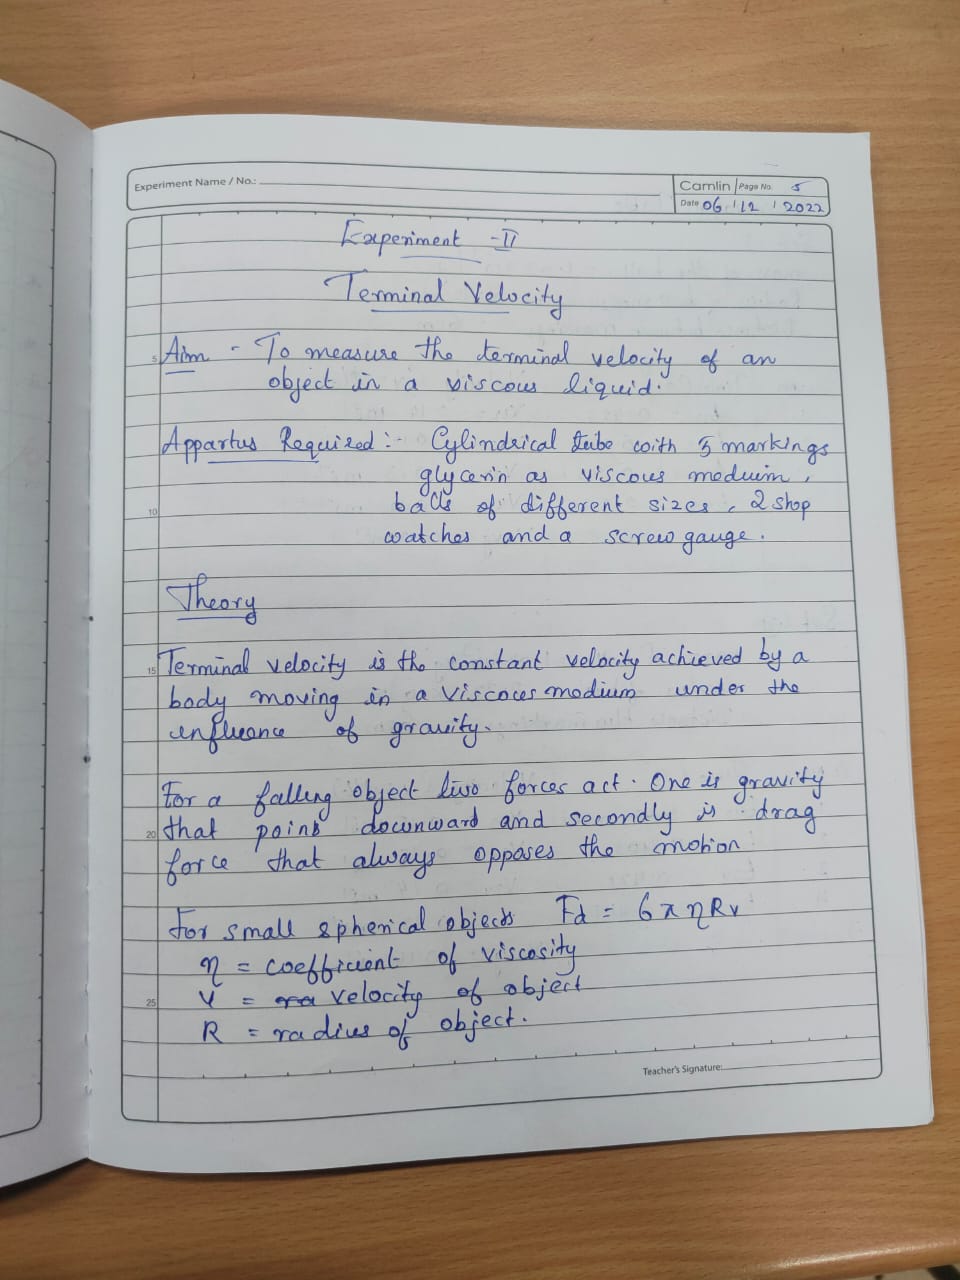 Experiment Name / No.:
Camlin Page No. 5
Date 06 / 12 / 2022
Experiment - II
Terminal Velocity
5 Aim - To measure the terminal velocity of an
object in a viscous liquid.
Appartus Required :- Cylindrical tube with 5 markings
glycerin as viscous meduim,
10 balls of different sizes, 2 shop
watches and a screw gauge.
Theory
15 Terminal velocity is the constant velocity achieved by a
body moving in a viscous medium under the
influence of gravity.
For a falling object two forces act. One is gravity
20 that poinb downward and secondly is drag
force that always opposes the motion
For small spherical objects Fd = 6 π η R v
η = coefficient of viscosity
25 v = velocity of object
R = radius of object.
Teacher's Signature: